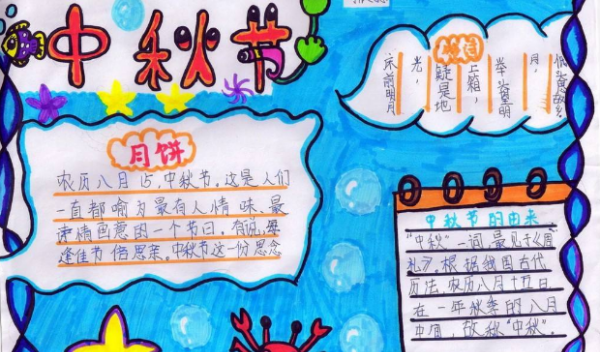 中秋节
床前明月
光，
疑是地
上箱，
举头望明
月，
低头思故乡
月饼
农历八月15，中秋节。这是人们
一直都喻为最有人情味、最
诗情画意的一个节日。有说，每
逢佳节倍思亲。中秋节这一份思念
中秋节的由来
"中秋"一词，最见于《周
礼》，根据我国古代
历法，农历八月十五日
在一年秋季的八月
中旬，故称"中秋"。